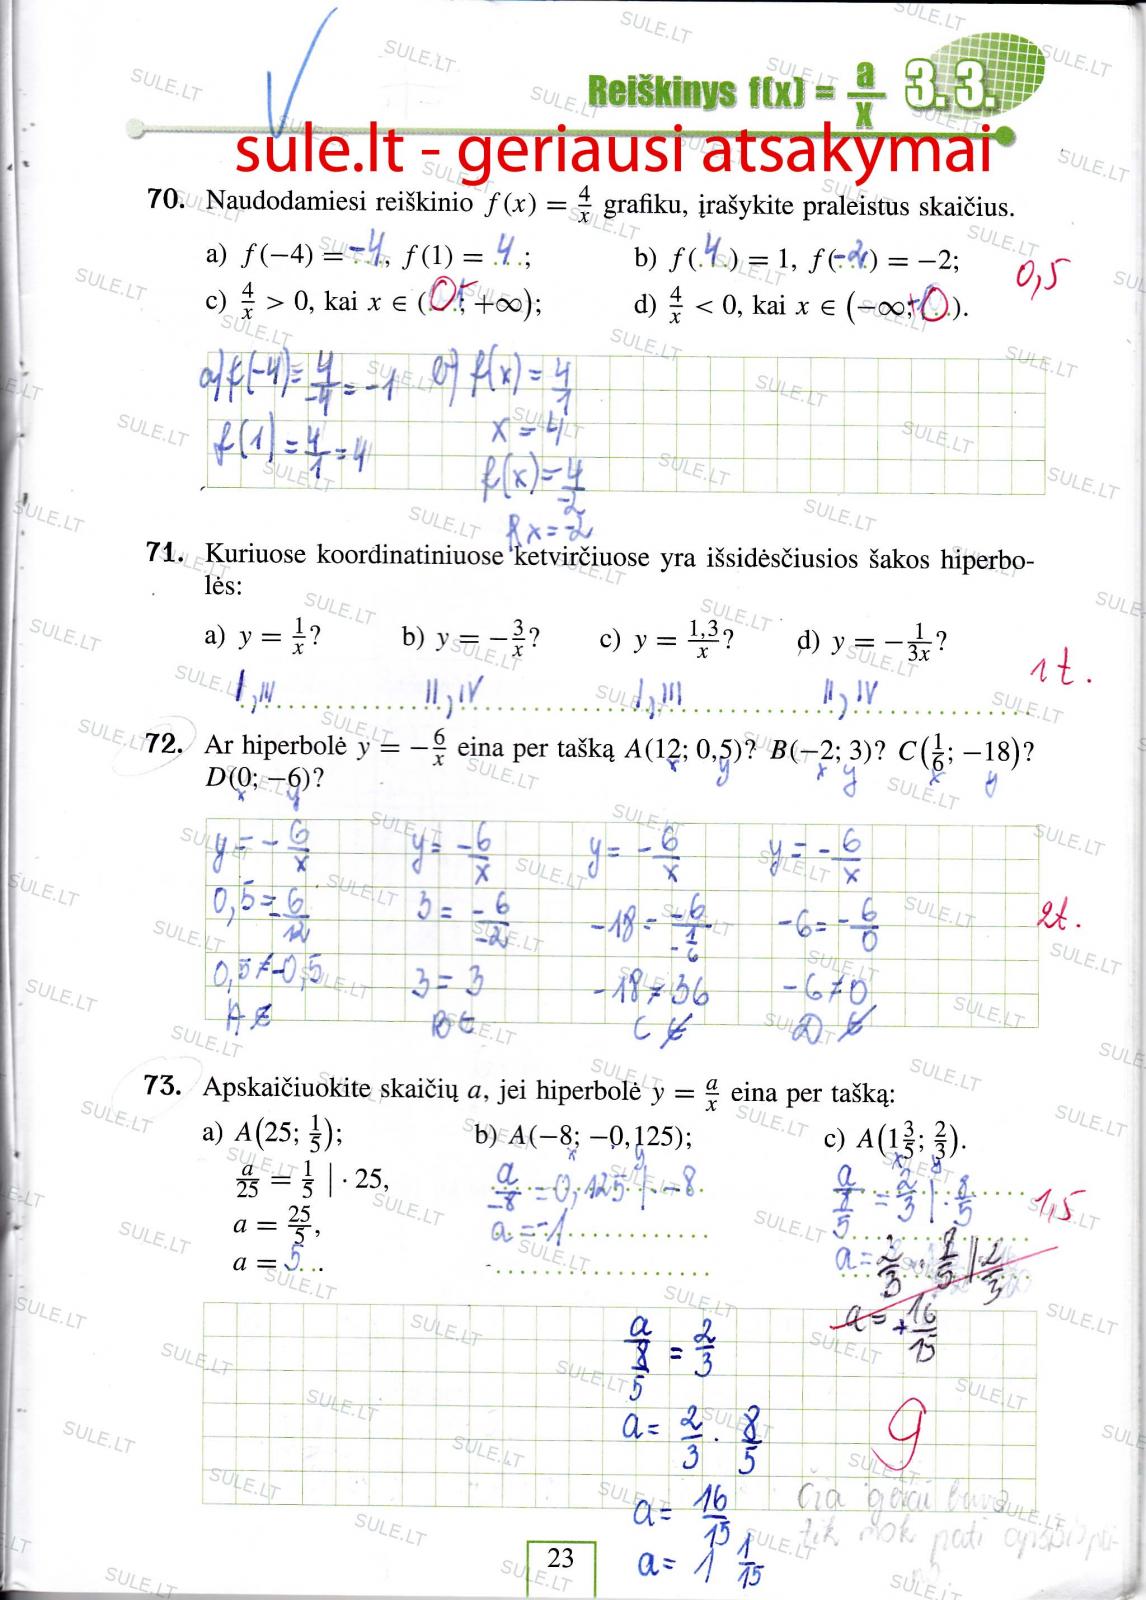 Reiškinys f(x) = a/x 3.3.
sule.lt - geriausi atsakymai
70. Naudodamiesi reiškinio f(x) = 4/x grafiku, įrašykite praleistus skaičius.
a) f(−4) = −4, f(1) = 4; b) f(4) = 1, f(−2) = −2;
0,5
c) 4/x > 0, kai x ∈ (0; +∞); d) 4/x < 0, kai x ∈ (−∞; 0).
a) f(-4) = 4/-4 = -1 b) f(x) = 4/1
f(1) = 4/1 = 4 x = 4
f(x) = 4/-2
x = -2
71. Kuriuose koordinatiniuose ketvirčiuose yra išsidėsčiusios šakos hiperbo-
lės:
a) y = 1/x? b) y = −3/x? c) y = 1,3/x? d) y = −1/3x?
1 t.
I, III II, IV I, III II, IV
72. Ar hiperbolė y = −6/x eina per tašką A(12; 0,5)? B(−2; 3)? C(1/6; −18)?
x y x y x y
D(0; −6)?
x y
y = -6/x y = -6/x y = -6/x y = -6/x
0,5 = -6/12 3 = -6/-2 -18 = -6/-1/6 -6 = -6/0
2t.
0,5 ≠ -0,5 3 = 3 -18 ≠ 36 -6 ≠ 0
A ∉ B ∈ C ∉ D ∉
73. Apskaičiuokite skaičių a, jei hiperbolė y = a/x eina per tašką:
a) A(25; 1/5); b) A(−8; −0,125); c) A(1 3/5; 2/3).
x y x y
a/25 = 1/5 | · 25, a/-8 = 0,125 | · -8 a/8/5 = 2/3 | · 8/5
1,5
a = 25/5, a = -1
a = 5 a = 2/3 · 8/5 || 2/3
a = +16/15
a/8/5 = 2/3
a = 2/3 · 8/5
9
a = 16/15
čia gerai buvo
tik mok pati
a = 1 1/15
23
SULE.LT